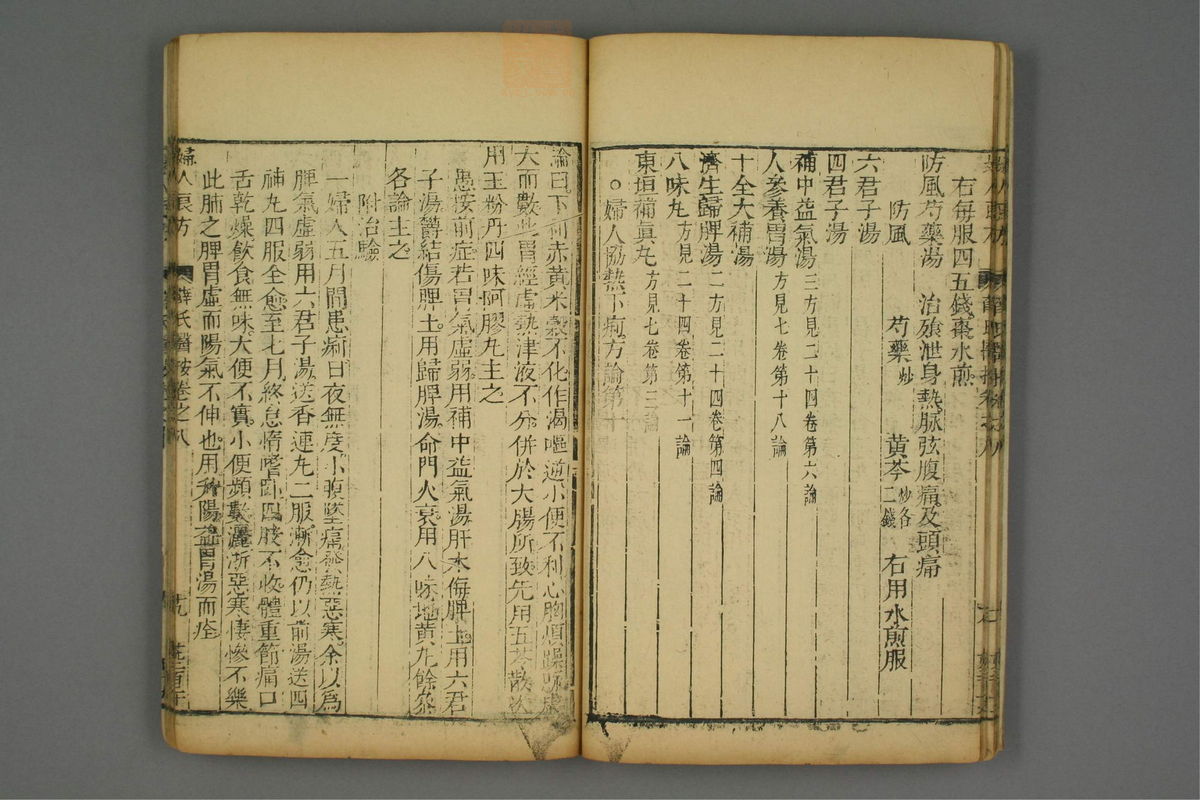 右每服四五錢棗水煎
防風芍藥湯 治飱泄身熱脉弦腹痛及頭痛
防風 芍藥炒 黃芩炒各二錢 右用水煎服
六君子湯
四君子湯
補中益氣湯三方見二十四卷第六論
人參養胃湯方見七卷第十八論
十全大補湯
濟生歸脾湯二方見二十四卷第四論
八味丸方見二十四卷第十一論
東垣補眞丸方見七卷第三論
○婦人協熱下痢方論第十
論曰下痢赤黃米穀不化作渴嘔逆小便不利心胸煩躁脉虛
大而數此胃經虛熱津液不分併於大腸所致先用五苓散次
用玉粉丹四味阿膠丸主之
愚按前症若胃氣虛弱用補中益氣湯肝木侮脾土用六君
子湯欝結傷脾土用歸脾湯命門火衰用八味地黃丸餘叅
各論主之
附治驗
一婦人五月間患痢日夜無度小腹墜痛發熱惡寒余以爲
脾氣虛弱用六君子湯送香連丸二服漸愈仍以前湯送四
神丸四服全愈至七月終怠惰嗜卧四肢不收體重節痛口
舌乾燥飲食無味大便不實小便頻數灑淅惡寒悽慘不樂
此肺之脾胃虛而陽氣不伸也用升陽益胃湯而痊
婦人良方 薛氏醫按卷之八